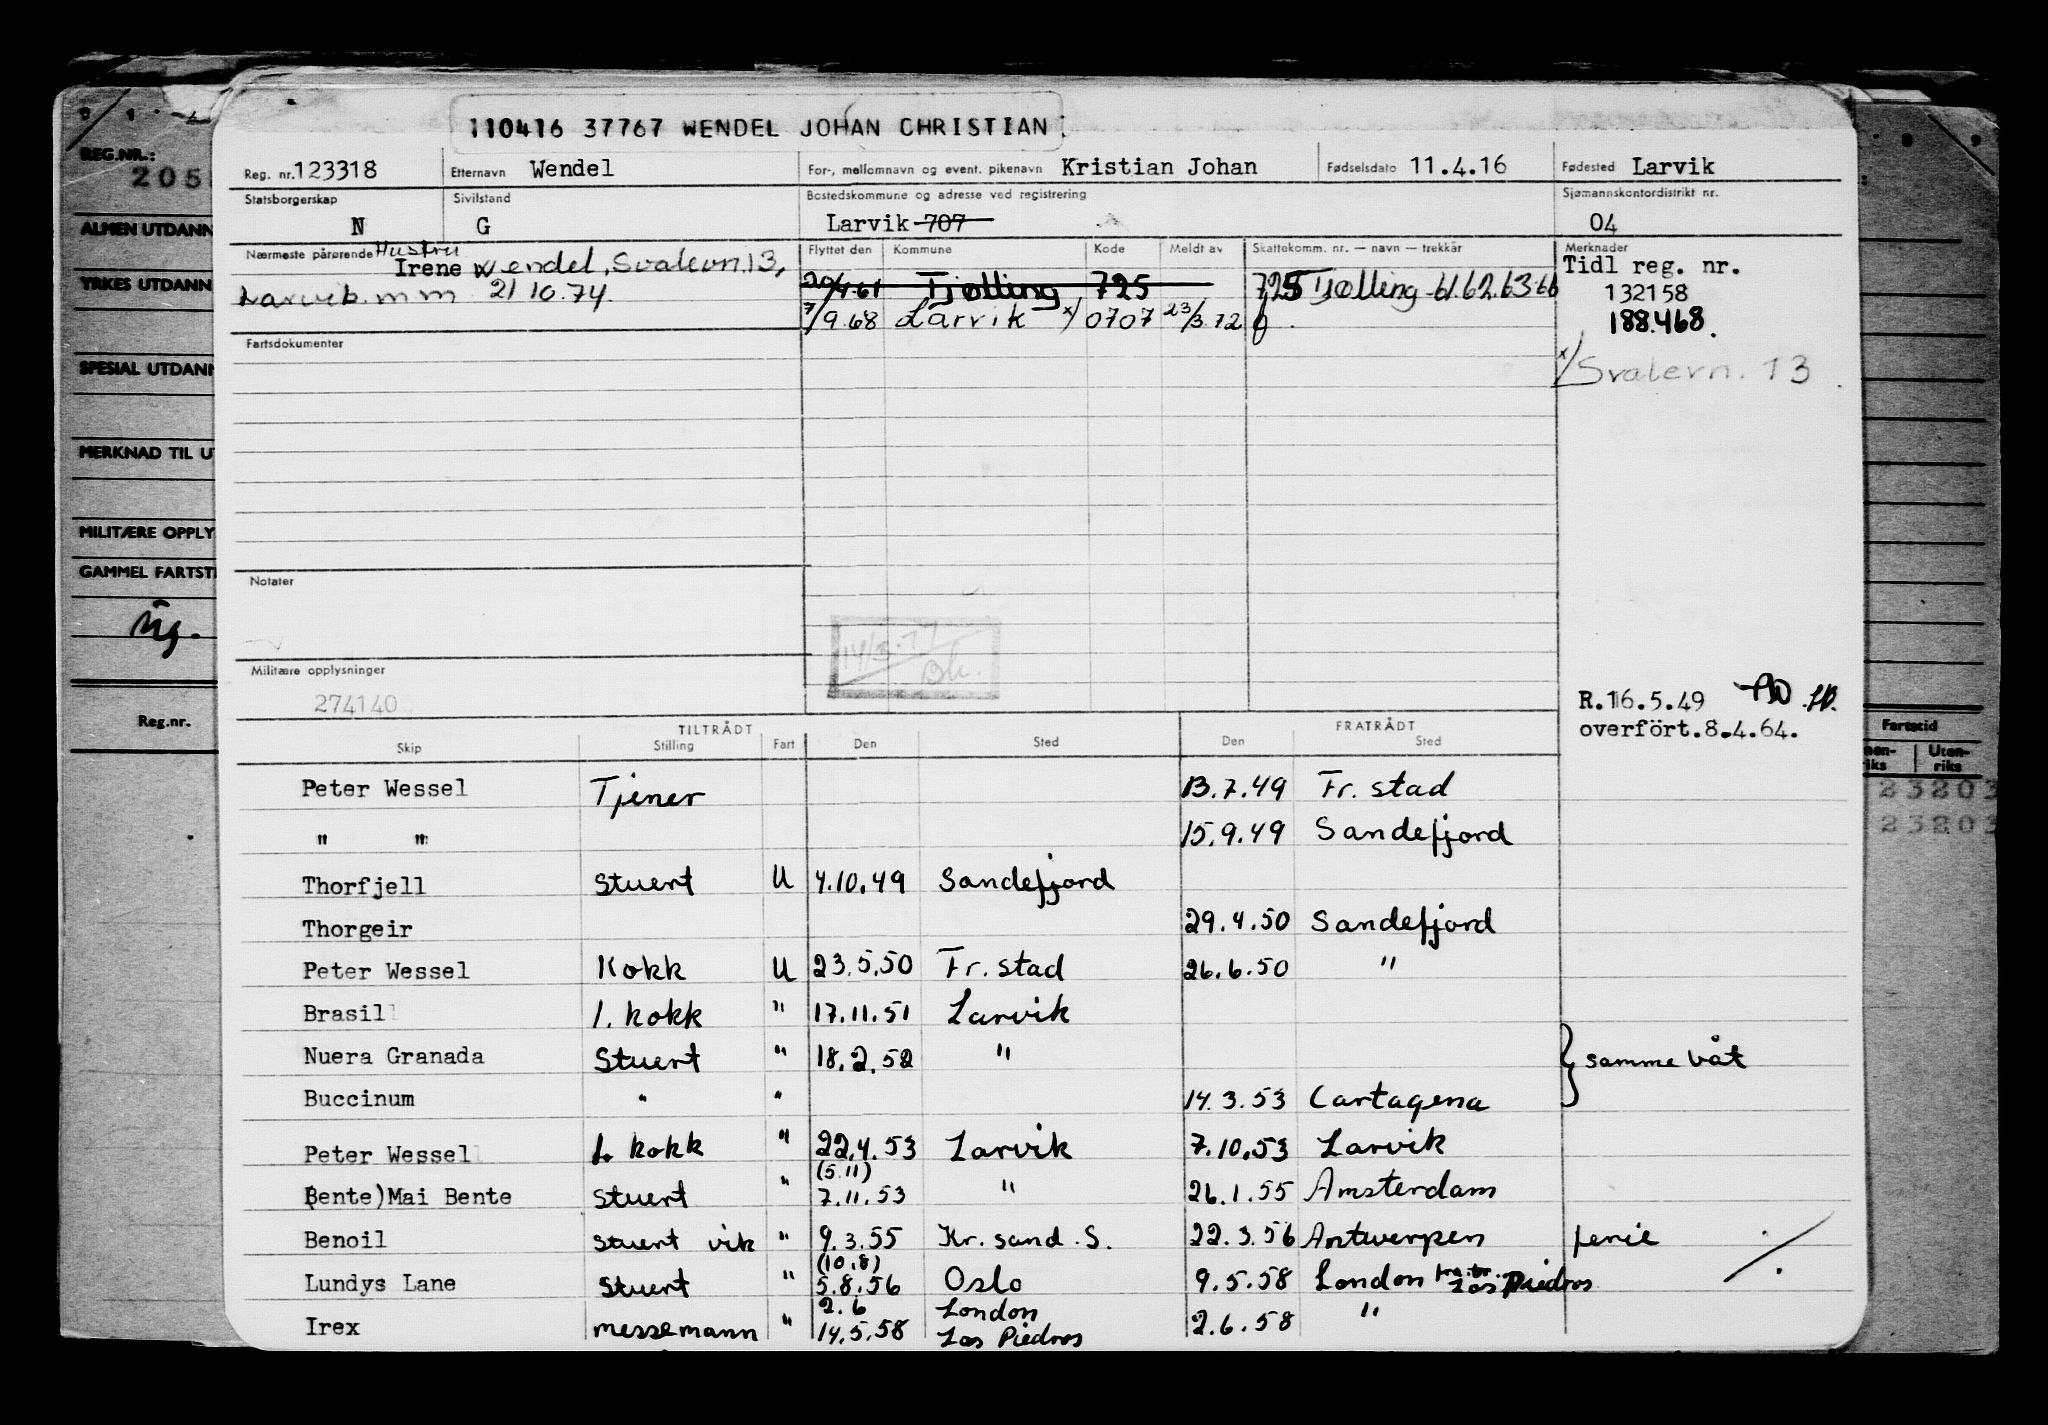 110416 37767 WENDEL JOHAN CHRISTIAN
REG.NR.:
205
ALMEN UTDANN
YRKES UTDANN
SPESIAL UTDANN
MERKNAD TIL U
MILITÆRE OPPLY
GAMMEL FARTST
Reg.nr.
Reg. nr. 123318 Etternavn Wendel For-, mellomnavn og event. pikenavn Kristian Johan Fødselsdato 11.4.16 Fødested Larvik
Statsborgerskap Sivilstand Bostedskommune og adresse ved registrering Sjømannskontordistrikt nr.
N G Larvik 707 04
Nærmeste pårørende Hustru Flyttet den Kommune Kode Meldt av Skattekomm. nr. — navn — trekkår Merknader
Irene Wendel, Svalevn.13, Tidl reg. nr.
Larvik. m m 21 10.74 20/4 61 Tjølling 725 725 Tjølling 61.62.63 132158
7/9.68 Larvik x/ 0707 23/3.72 188.468.
Fartsdokumenter
x/Svalevn. 13
Notater
14/3.77
Militære opplysninger
274140
R.16.5.49
overfört.8.4.64.
TILTRÅDT FRATRÅDT
Skip Stilling Fart Den Sted Den Sted
Fartstid
Uten-
riks
Peter Wessel Tjener 13.7.49 Fr. stad
23203
" " 15.9.49 Sandefjord
23203
Thorfjell Stuert U 4.10.49 Sandefjord
Thorgeir 29.4.50 Sandefjord
Peter Wessel Kokk U 23.5.50 Fr. stad 26.6.50 "
Brasil 1. kokk " 17.11.51 Larvik
Nuera Granada Stuert " 18.2.52 " } samme båt
Buccinum " " 14.3.53 Cartagena
Peter Wessel 1. kokk " 22.4.53 Larvik 7.10.53 Larvik
(5.11)
(Bente)Mai Bente Stuert " 7.11.53 " 26.1.55 Amsterdam
Benoil Stuert vik " 9.3.55 Kr. sand. S. 22.3.56 Antwerpen ferie
(10.8)
Lundys Lane Stuert " 5.8.56 Oslo 9.5.58 London Las Piedras
2.6 London
Irex messemann " 14.5.58 Las Piedras 2.6.58 "